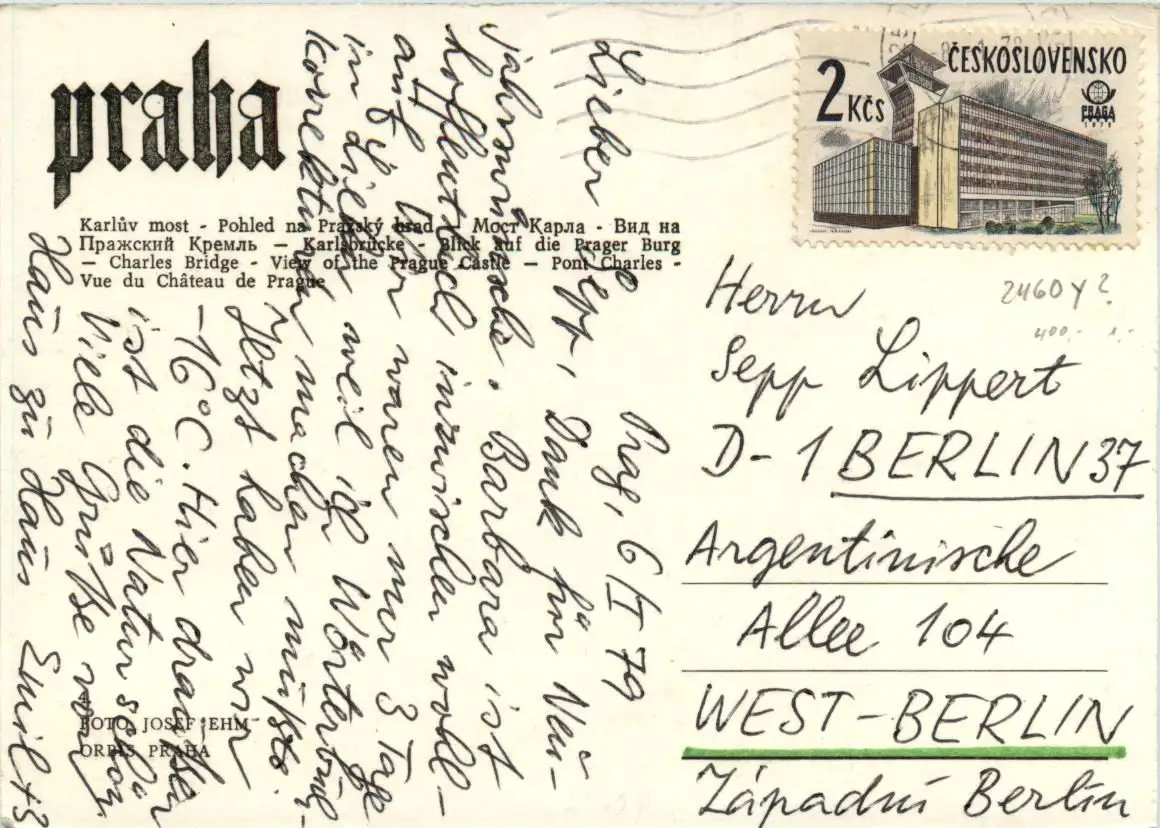 praha
Karlův most - Pohled na Pražský hrad - Мост Карла - Вид на
Пражский Кремль — Karlsbrücke - Blick auf die Prager Burg
— Charles Bridge - View of the Prague Castle — Pont Charles -
Vue du Château de Prague
FOTO JOSEF EHM
ORBIS PRAHA
2 Kčs
ČESKOSLOVENSKO
PRAGA
1978
Prag, 6/I 79
Lieber Sepp, Dank für Neu-
jahrswünsche. Barbara ist
hoffentlich inzwischen wohl-
auf. Wir waren nur 3 Tage
in weil ich Wörterbuch-
korrekturen machen müsste.
Jetzt haben wir
-16°C. Hier draußen
ist die Natur schön
Viele Grüße von
Haus zu Haus Emil +3
Herrn
Sepp Lippert
D-1 BERLIN 37
Argentinische
Allee 104
WEST-BERLIN
Západní Berlin
2460y?
400.- 1.-